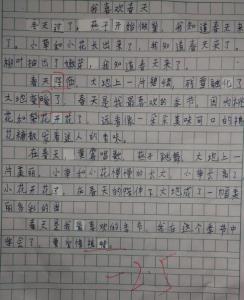 我喜欢春天
冬天过了，燕子开始做梦，我知道春天来
了。小草和小花长出来了，我知道春天来了。
树叶抽出了嫩芽，我知道春天来了。
春天，大地上一片碧绿，冰雪融化了
大地变暖了。春天是我最喜欢的季节，因为桃
花和梨花开花了，远看像一朵朵美味可口的棉
花糖散发着迷人的香味。
在春天，黄莺唱歌，燕子跳舞，大地上一
片美丽。小草和小花慢慢的长大，小草长高了
小花开花了，在春天的陪伴下大地成了一幅美
丽多彩的画
春天是我最喜欢的季节，我在这个季节中
学会了，要坚强
-2.5